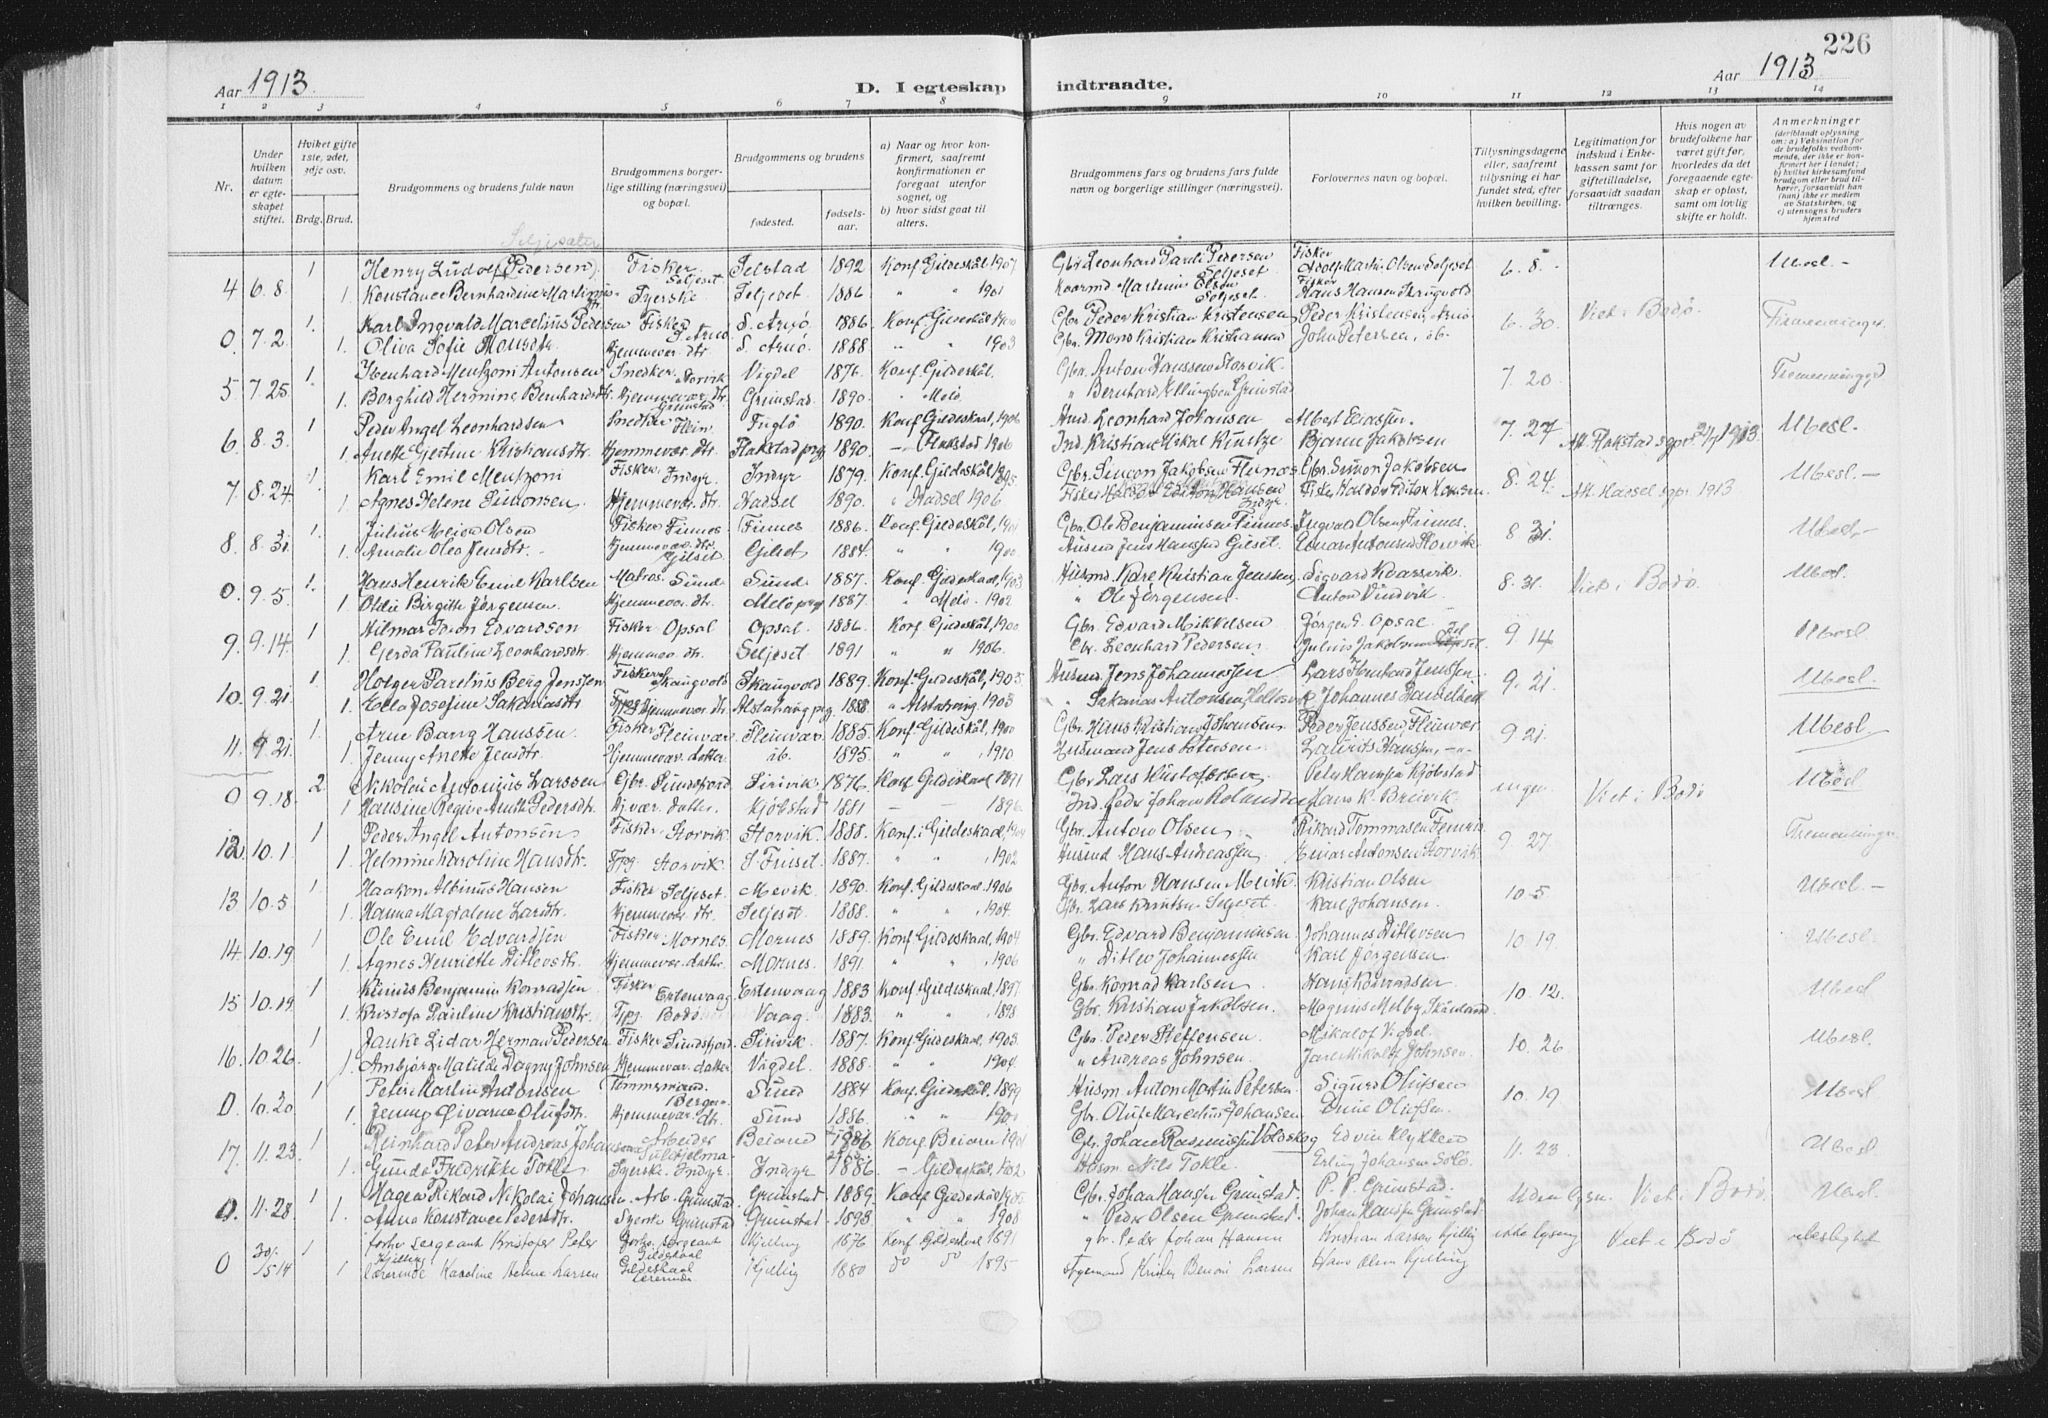 226
Aar 1913.
D. I egteskap indtraadte.
Aar 1913
1 2 3 4 5 6 7 8 9 10 11 12 13 14
Nr.
Under hvilken datum er egteskapet stiftet.
Hviket gifte 1ste, 2det, 3dje osv.
Brdg. Brud.
Brudgommens og brudens fulde navn
Brudgommens borgerlige stilling (næringsvei) og bopæl.
Brudgommens og brudens
fødested.
fødselsaar.
a) Naar og hvor konfirmert, saafremt konfirmationen er foregaat utenfor sognet, og
b) hvor sidst gaat til alters.
Brudgommens fars og brudens fars fulde navn og borgerlige stillinger (næringsvei).
Forlovernes navn og bopæl.
Tillysningsdagene eller, saafremt tillysning ei har fundet sted, efter hvilken bevilling.
Legitimation for indskud i Enkekassen samt for giftetilladelse, forsaavidt saadan tiltrænges.
Hvis nogen av brudefolkene har været gift før, hvorledes da det foregaaende egteskap er opløst, samt om lovlig skifte er holdt.
Anmerkninger
(deriblandt oplysning om: a) Vaksination for de brudefolks vedkommende, der ikke er konfirmert her i landet; b) hvilket kirkesamfund brudgom eller brud tilhører, forsaavidt han (hun) ikke er medlem av Statskirken, og c) utensogns bruders hjemsted
4 6.8 1 Henry Ludolf (Pedersen) Fisker Seljeset Selstad 1892 Konf. Gildeskål, 1907 Gbr. Leonhard Pauli Pedersen Seljeset Fisker Adolf Martin Olsen Seljeset 6.8. Ubesl.
1. Konstance Bernhardine Martinusdtr. Syerske Seljeset. 1886 " " 1901 Martinus Olsen Seljeset Fisker Hans Hansen Skaugvold
0. 7.2. 1. Karl Ingvald Marcelius Pedersen Fisker S. Arnö S. Arnö 1886 Konf. Gildeskål 1900 Gbr. Peder Kristian Kristensen Peder Kristensen, Arnö 6.30. Viet i Bodö. Firmenninger
1. Oliva Sofie Monsdtr. Hjemmevær. dtr. S. Arnö. 1888 " " 1903 Gbr. Mons Kristian Kristiansen John Petersen, ib.
5 7.25. 1. Ibenhard Mentzoni Antonsen Snedker Storvik Vigdel 1876. Konf. Gildeskål. Gbr. Anton Hanssen Storvik. 7.20. Tremenninger
1. Borghild Hermine Bernhardsdtr. Hjemmevær. dtr. Grimstad Grimstad 1890. " Melö. " Bernhard Ellingsen Grimstad
6. 8.3. 1 Peder Angel Leonhardsen Snedker Flein Fuglö 1890. Konf. Gildeskaal, 1906 Leonhard Johansen Albert Eliassen. 7.27 Att. Flakstad sgpr. 24/7 1913. Ubesl.
1. Anette Gjertine Kristiansdtr. Hjemmevær dtr. Flakstad prg 1890. - Flakstad 1906 Ind. Kristian Mikal Kuntze Bjarne Jakobsen
7. 8.24. 1. Karl Emil Mentzoni Fisker Indyr Indyr 1879. Konf. Gildeskål 1895 Gbr. Simeon Jakobsen Fleines Gbr. Simon Jakobsen 8.24. Att. Hadsel sgpr. 1913. Ubesl.
1 Agnes Helene Hjemmevær. dtr. Hadsel 1890. " Hadsel 1906 Fisker Editon Hansen Indyr. Fisker Haldor Editon Hansen.
8. 8.31. 1. Julius Meier Olsen Fisker Finnes Finnes 1886. Konf. Gildeskål, 1901 Gbr. Ole Benjaminsen Finnes. Ingvald Olsen Finnes. 8.31. Ubesl.
1. Amalie Olea Jensdtr. Hjemmevær. dtr. Gjelset Gjelset 1884. " " 1900. Jens Hanssen Gjelset. Edvard Antonsen Storvik.
0. 9.5. 1. Hans Henrik Emil Karlsen Matros. Sund Sund 1887. Konf. Gildeskaal, 1903 Husmd. Karl Kristian Jenssen Sigvard Kvarsvik. 8.31. Viet i Bodö. Ubesl.
1. Otelie Birgitte Jörgensen Hjemmevær. dtr. Melö prg 1887. " Melö. 1902 " Ole Jörgensen. Anton Vindvik.
9. 9.14. 1 Hilmar Edvardsen Fisker Opsal Opsal. 1886. Konf. Gildeskål, 1900 Gbr. Edvard Mikkelsen Jörgen E. Opsal. 9.14 Ubesl.
1. Gerda Pauline Leonhardsdtr. Hjemmevær. dtr. Seljeset 1891 " " 1906. Gbr. Leonhard Pedersen. Julius Jakobsen
10. 9.21. 1 Holger Parelius Berg Jenssen Fisker Skaugvold Skaugvold 1889. Konf. Gildeskål, 1905 Husmd. Jens Johannessen Lars Ibenhard Jenssen 9.21. Ubesl.
1. Ella Josefine Sakariasdtr. Hjemmevær dtr. Alstahaug prg. 1888 " Alstahaug. 1903 " Sakarias Antonsen Johannes Danielsen
11. 9.21. 1. Arne Bang Hanssen. Fisker Fleinvær. Fleinvær 1885. Konf. Gildeskål, 1900 Gbr. Hans Kristian Johansen. Peder Jenssen Fleinvær 9.21. Ubesl.
1. Jenny Anette Jensdtr. Hjemmevær. datter. ib. 1895. " " 1910 Husmand Jens Petersen. Laurits Hanssen, -"-
0 9.18. 2 Nikolai Antonius Larssen Gbr. Sundsfjord Sirivik. 1876. Konf. Gildeskaal 1891 Gbr. Lars Kristoffersen. Peter Hanssen Kjöbstad ingen. Viet i Bodö Ubesl
1 Hansine Regine Anette Pedersdtr. Hj.vær. datter. Kjöbstad 1881 — — 1896. Ind. Peder Johan Hans K. Breivik.
12 10.1. 1 Peder Angel Antonsen Fisker Storvik Storvik. 1888. Konf. i Gildeskaal, 1904 Gbr. Anton Olsen. Rikard Tommasen Femris 9.27. Tremenninger
1. Helmine Karoline Hansdtr. Tjpg. Storvik. 1887. " " 1902 Husmd Hans Andreassen. Einar Antonsen Storvik.
13 10.5 1 Haakon Albinus Hansen Fisker Seljeset. Mevik. 1890. Konf. Gildeskaal. 1906 Gbr. Anton Hansen Mevik. Kristian Olsen 10.5 Ubesl.
1. Hanna Magdalene Larsdtr. Hjemmevær. dtr. Seljeset. 1888. " " 1904. Gbr. Lars Knutsen Seljeset. Karl Johansen.
14 10.19 1 Ole Emil Edvardsen Fisker Mornes Mornes 1889. Konf. Gildeskaal, 1904 Gbr. Edvard Benjaminsen. Johannes Ditlevsen 10.19. Ubesl.
1. Agnes Henriette Ditlevsdtr. Hjemmevær. datter. Mornes. 1891. " " 1906 " Ditlev Johannessen Karl Jörgensen
15 10.19 1 Benjamin Konradsen Fisker Ertenvaag Ertenvaag 1883 Konf. Gildeskaal, 1897 Gbr. Konrad Karlsen Hans Konradsen 10.12. Ubesl
1. Kristofa Pauline Kristiansdtr. Tjpg. Bodö. Vaag. 1883. " " 1898. Gbr. Kristian Jakobsen. Magnus Melby Skånland
16. 10.26 1 Janke Lidar Herman Pedersen Fisker Sundsfjord Sirivik. 1887. Konf. Gildeskaal, 1903. Gbr. Peder Steffensen Mikalof Vigdel. 10.26 Ubesl.
1. Ambjörg Matilde Dagny Johnsen Hjemmevær. datter. Vigdel 1888. " " 1904. " Andreas Johnsen. Jarl Nikolai Johnsen.
0. 10.20. 1 Peter Martin Antonsen Tömmermand. Bergen Sund 1884 Konf. Gildeskål. 1899 Husm. Anton Martin Petersen. Sigurd Olufsen 10.19 Ubesl
1. Jenny Givarne Olufsdtr. Hjemmevær. dtr. Sund 1886. " " 1900 Gbr. Oluf Marselius Johansen Enne Olufsen.
17. 11.23. 1 Reinhard Peter Andreas Johansen Arbeider Sulitjelma Beiarn 1886 Konf. Beiarn 1901 Gbr. Johan Rasmussen Voldskog Edvin Klykken 11.23. Ubesl
1. Gunda Fredrikke Tokle. Syerske. Indyr. Indyr 1886. - Gildeskål, 1902 Husm. Nils Tokle. Erling Johansen Sölö.
0. 11.28. 1 Hagen Rikard Nikolai Johansen. Arb. Grimstad Grimstad 1889. Konf. Gildeskål 1905 Gbr. Johan Hansen Grimstad. P. P. Grimstad. Uden lysn. Viet i Bodö. Ubesl.
1. Anna Konstance Pedersdtr. Syerske Grimstad Grimstad. 1893 " " 1908 " Peder Olsen Grimstad. Johan Hansen Grimstad.
0 30/5 14 1 forhv. sergeant Kristofer Peter Kjelling forhv. sergeant Gildeskaal Kjelling 1876 Konf. Gildeskaal 1891 gbr. Peder Johan Hansen Kristian Larsen Kjellig ikke lysning Viet i Bodö ubeslegtet
1 lærerinde Karoline Helene Larsen Gildeskaal lærerinde Kjellig 1880 do do 1895 Benoni Larsen Hans Olsen Kjelling